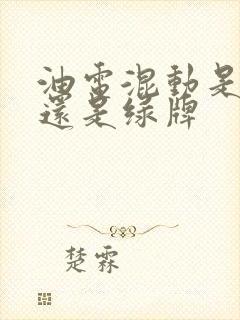 油電混動是
還是綠牌
楚霖